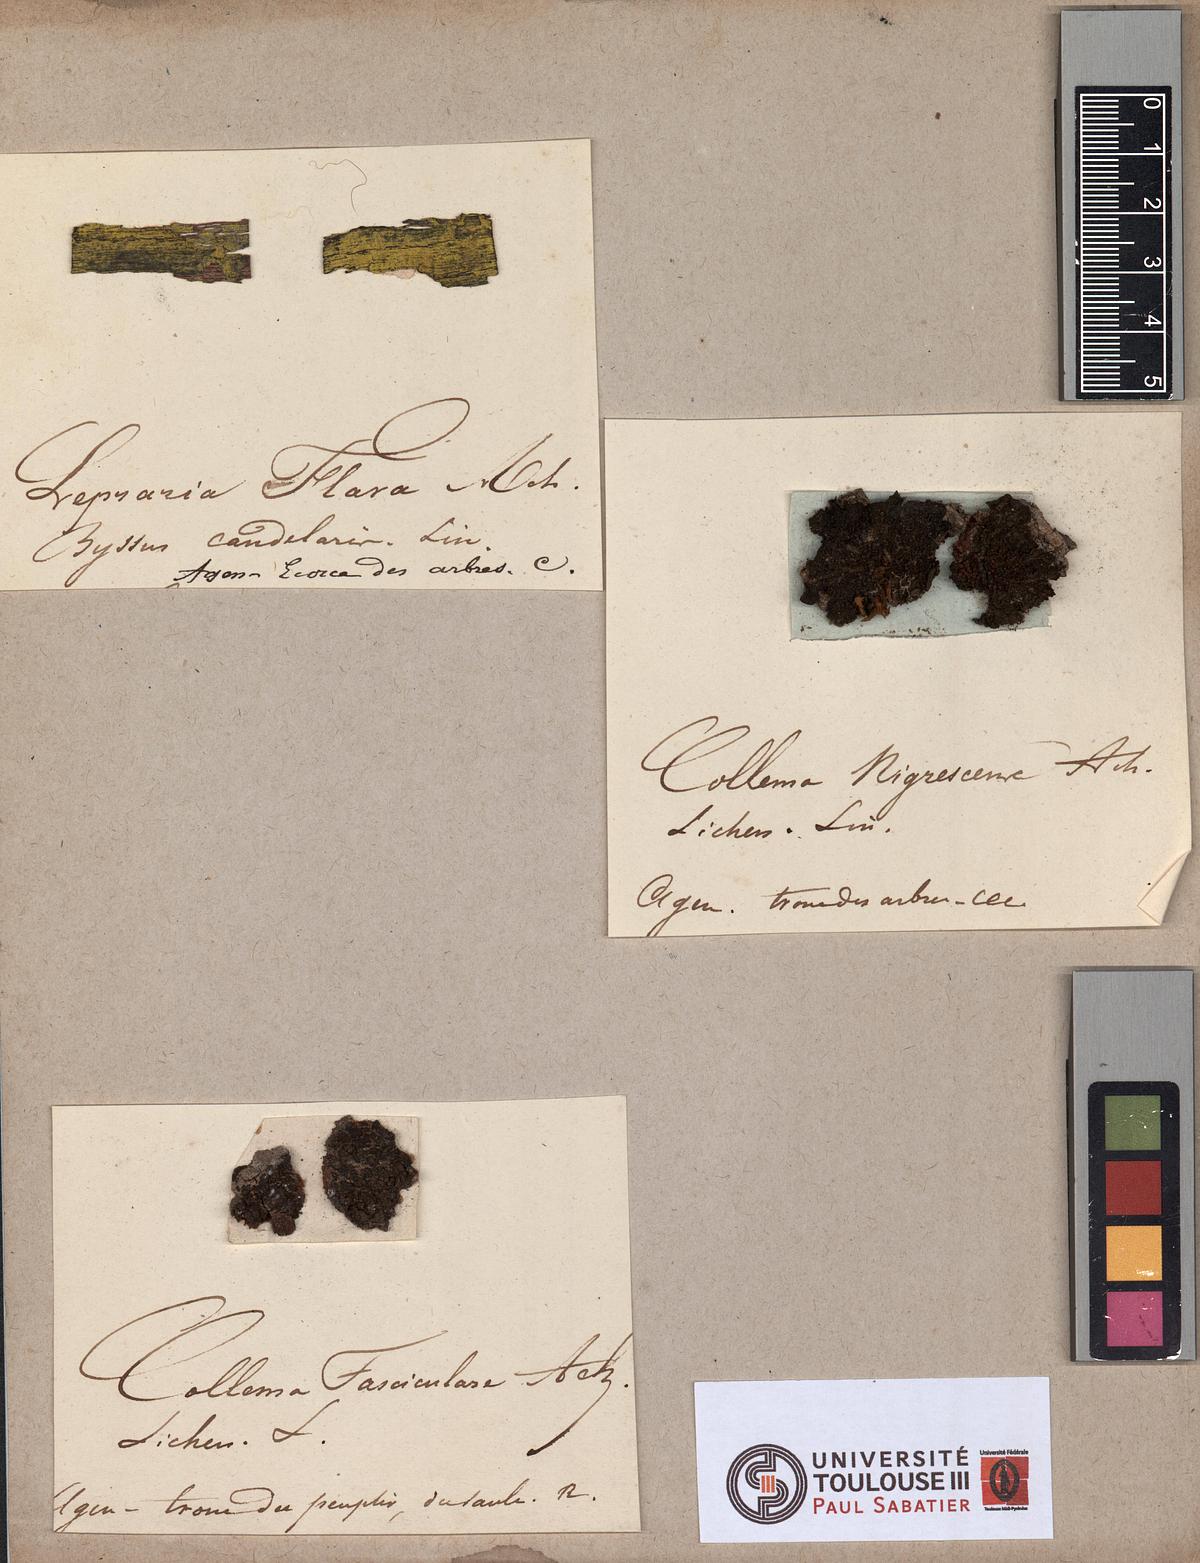 Lepraria Flava Ach.
Byssus candelaris. Lin.
Agen - Ecorce des arbres. C.
0
1
2
3
4
5
Collema Nigrescens Ach.
Lichen. Lin.
Agen. tronc des arbres - CCC
Collema Fasciculare Ach.
Lichen. L.
Agen - tronc du peuplier, du saule. R.
UNIVERSITÉ
TOULOUSE III
PAUL SABATIER
Université Fédérale
Toulouse Midi-Pyrénées